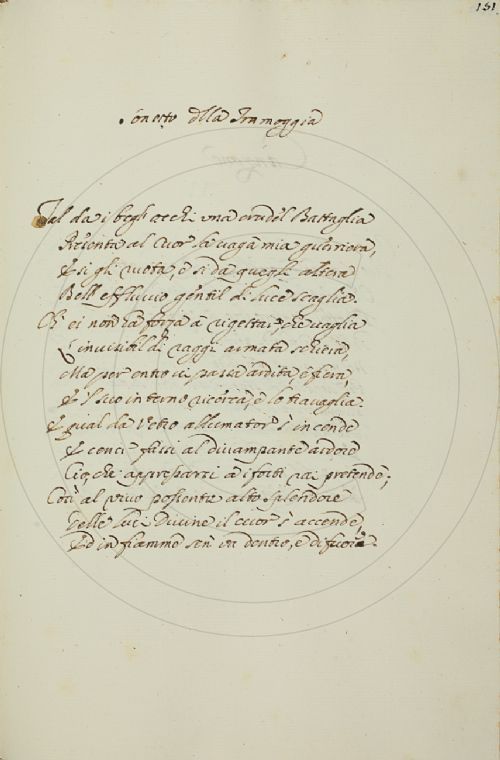 151
Sonetto della Tramoggia
Tal da i begl'occhi una crudel Battaglia
al Cuor la vaga mia guerriera,
E sì gli ruota, e sì da quegli altera
Bell'effluvio gentil di luce scaglia.
Ch'ei non ha forza à rigettar, che vaglia
L'invisibil di raggi armata schiera,
Ma per entro vi passa ardita, e fiera,
E'l suo interno ricerca, e lo travaglia.
E qual da Vetro allumator s'incende
E fassi al divampante ardore
Ciò, che appressarsi à i forti rai pretende;
Così al vivo possente alto splendore
Delle luci Divine il cuor s'accende,
Ed in fiamme sen và dentro, e di fuore.